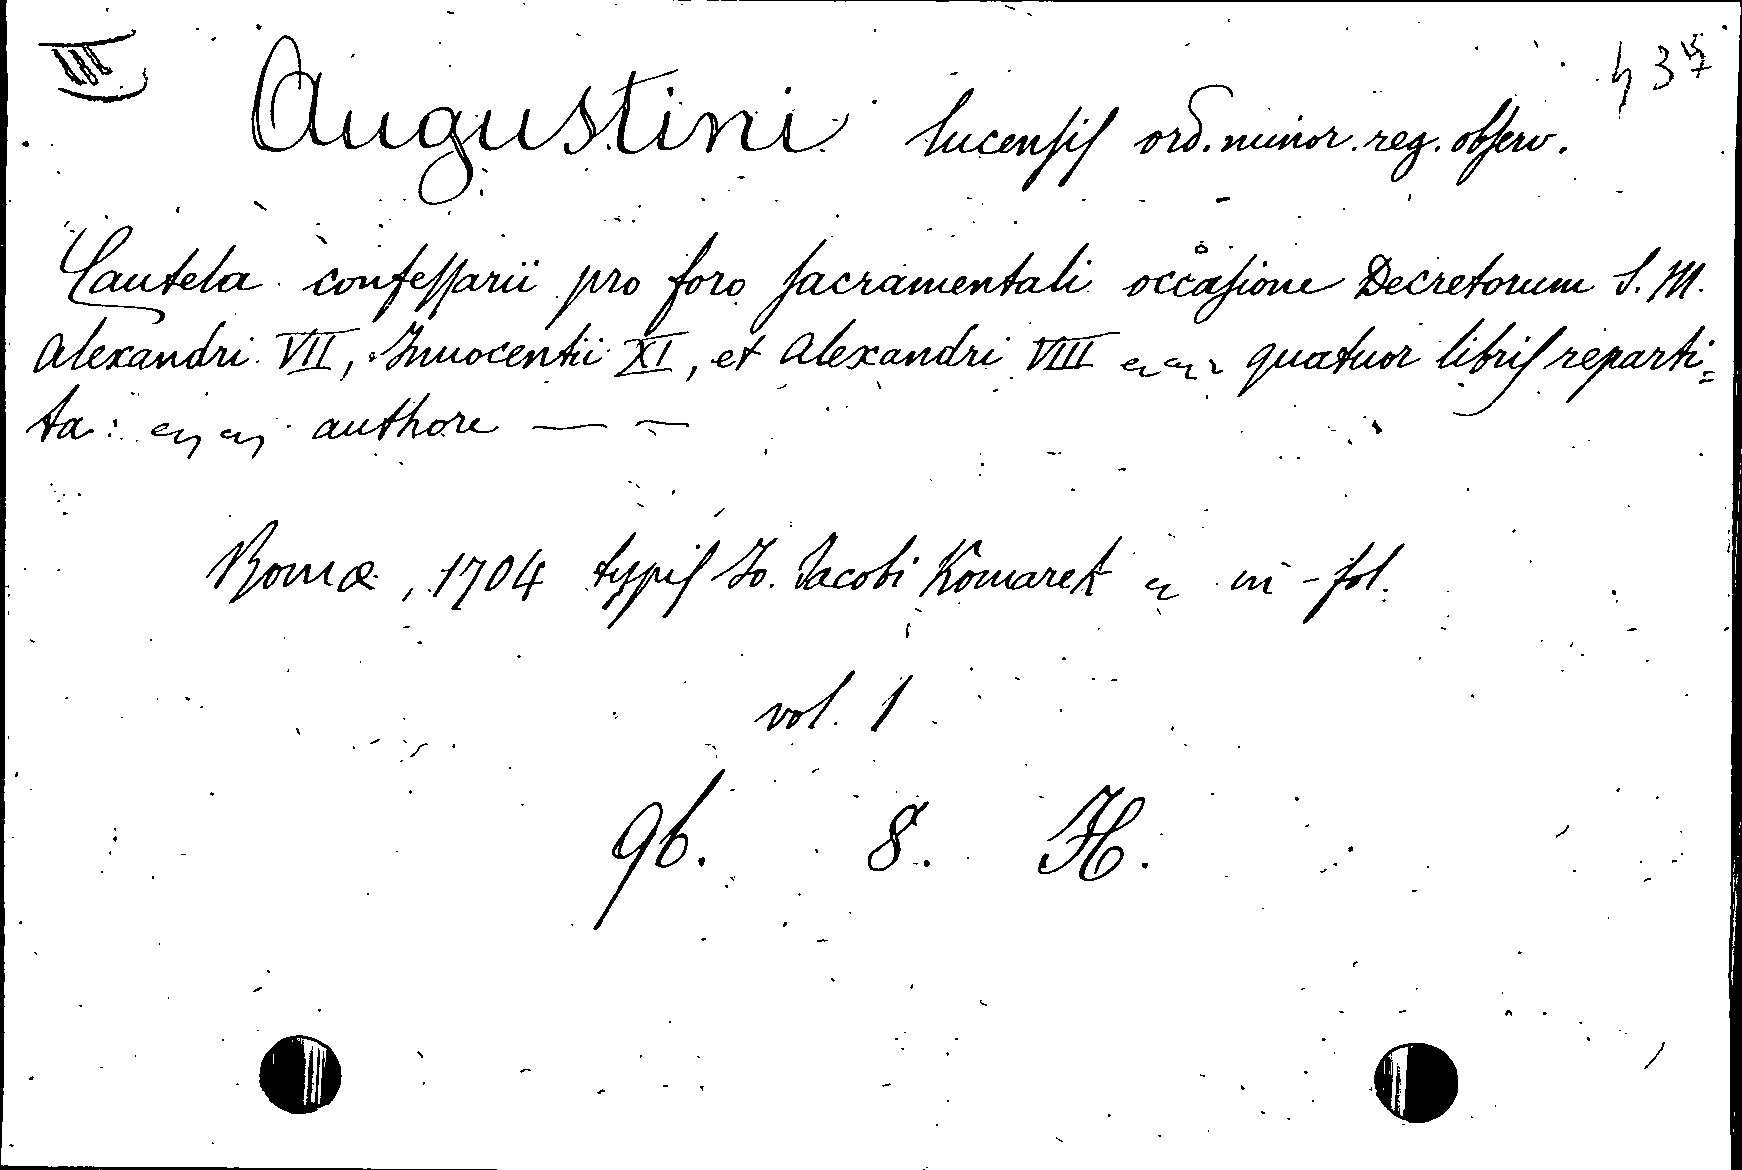 III
Augustini lucensis ord. minor. reg. observ.
Cautela confessarii pro foro sacramentali occasione Decretorum S. M.
Alexandri VII, Innocentii XI, et Alexandri VIII quatuor libris reparti=
ta: authore — —
Romæ, 1704 typis Jo. Jacobi Komarek in-fol.
vol. 1
96. 8. H.